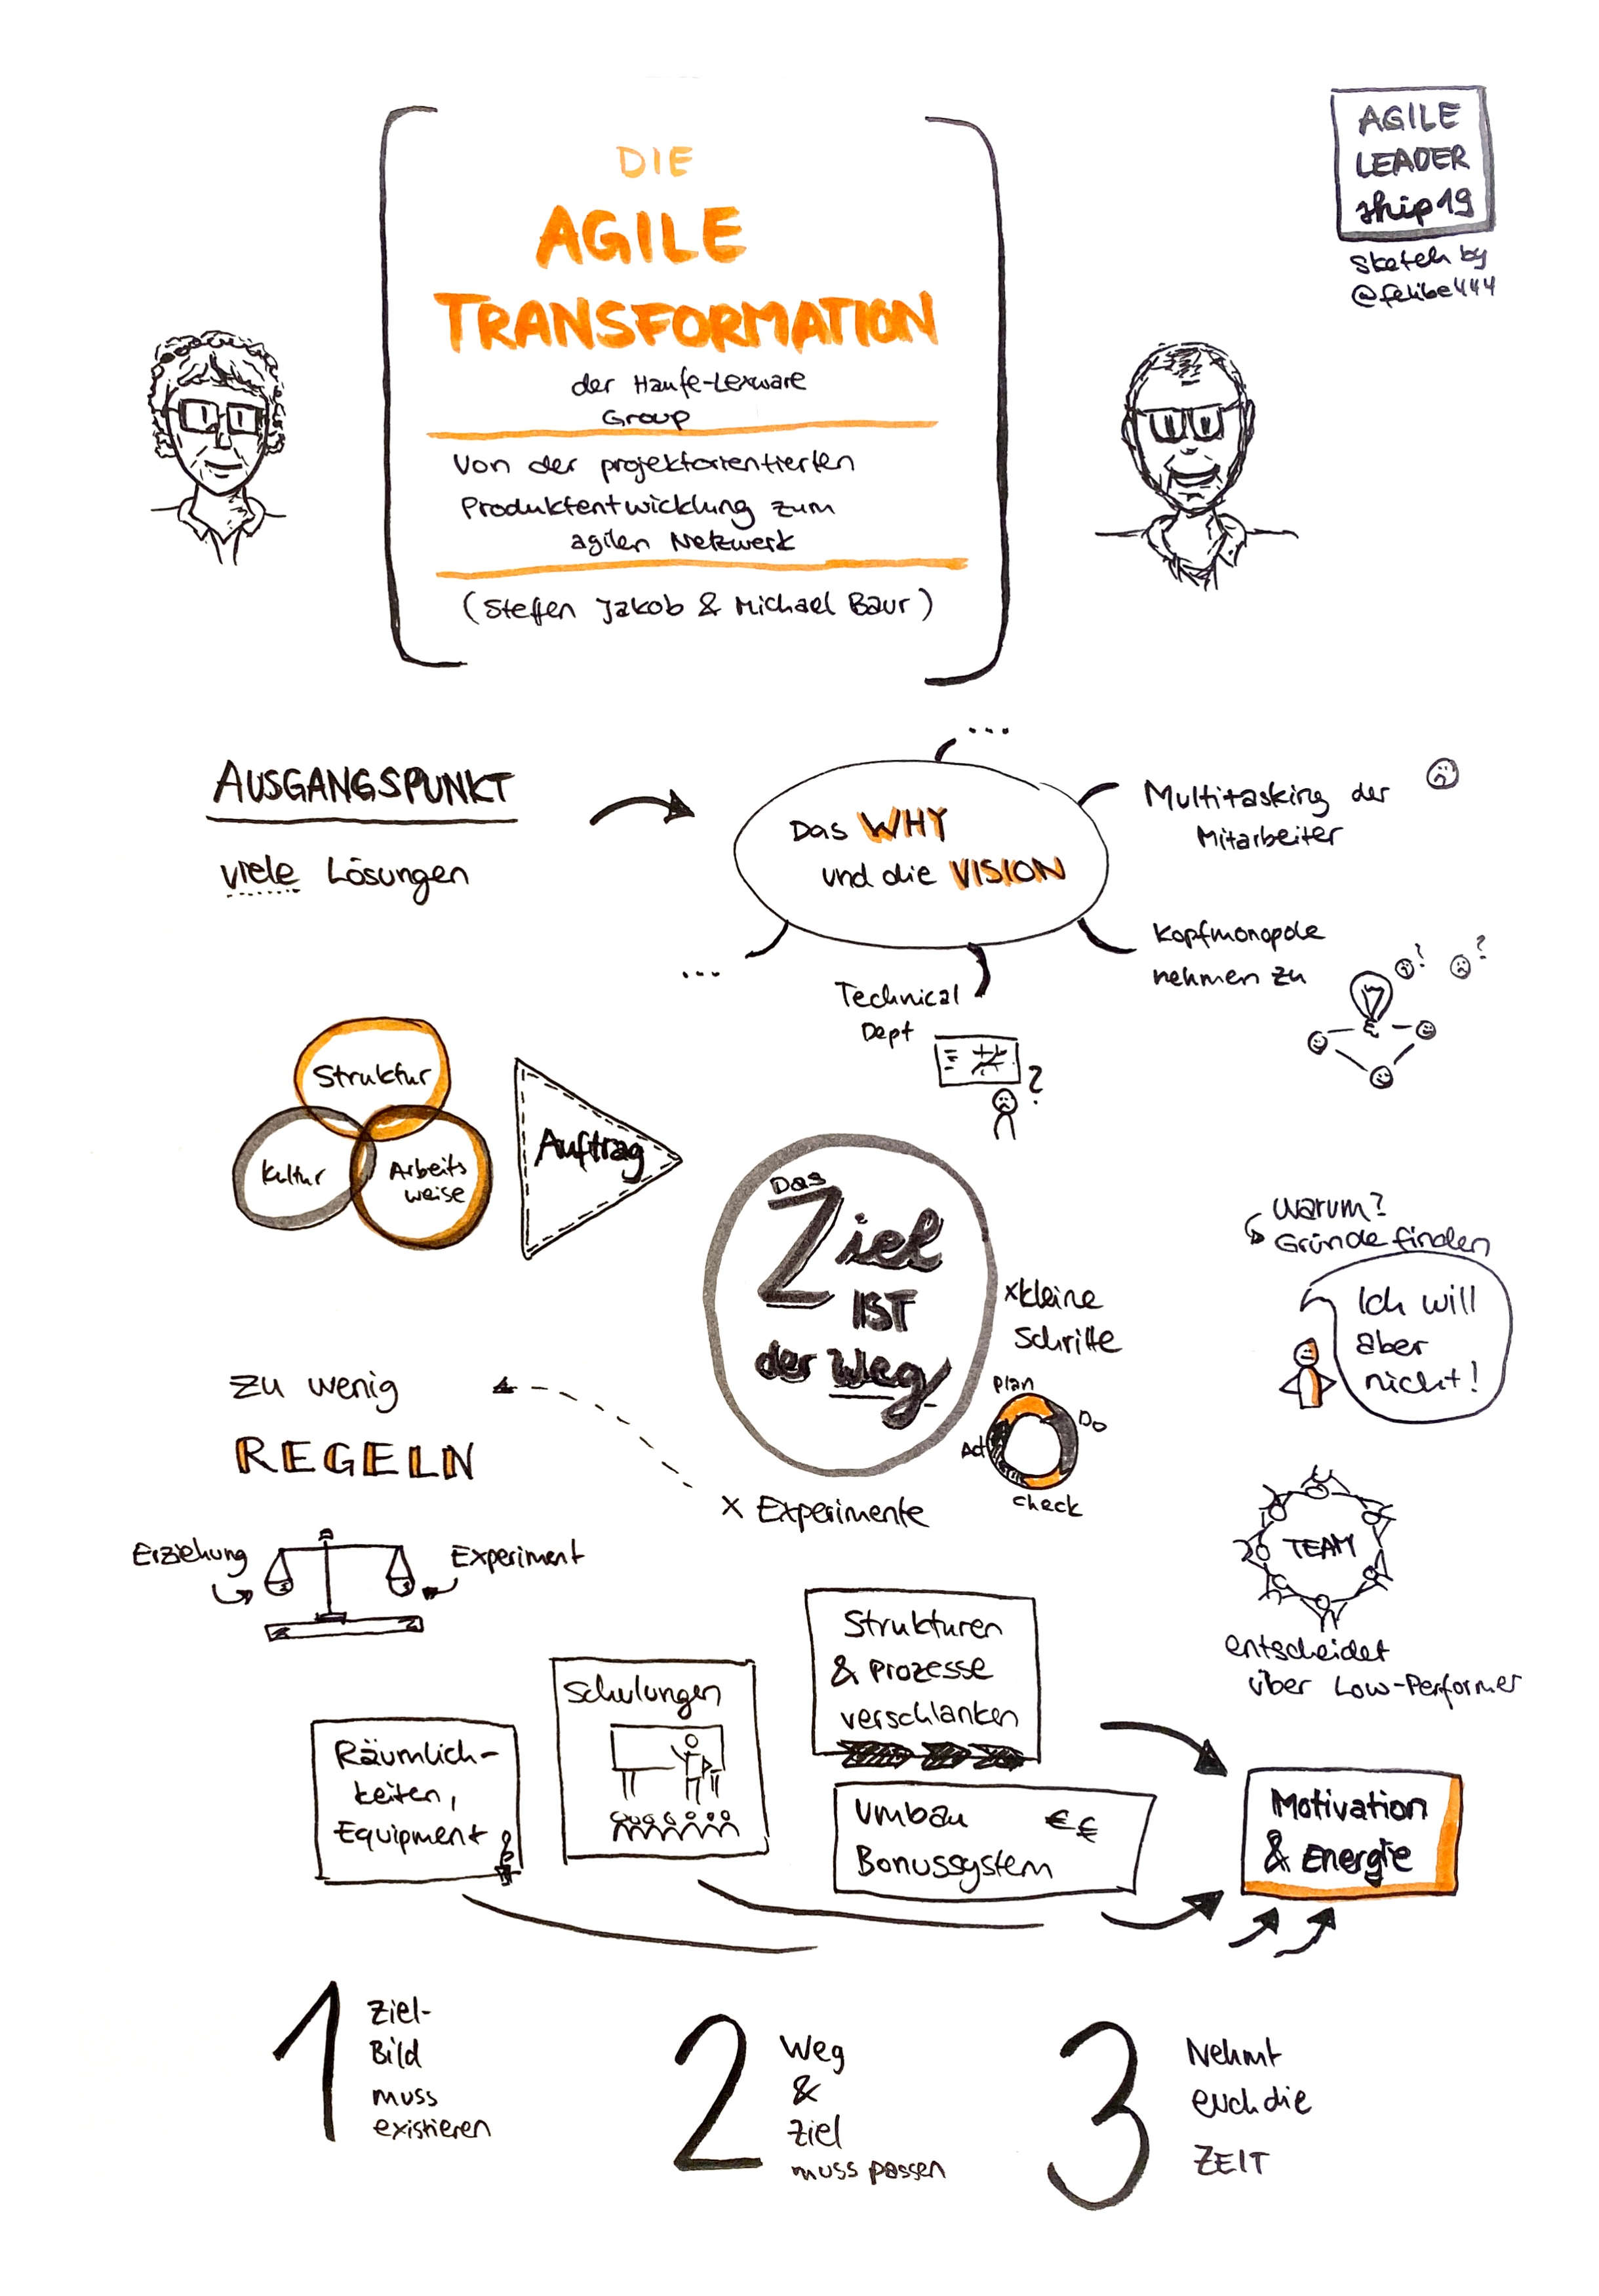 DIE
AGILE
TRANSFORMATION
der Haufe-Lexware
Group
Von der projektorientierten
Produktentwicklung zum
agilen Netzwerk
(Steffen Jakob & Michael Baur)
AGILE
LEADER
ship19
Sketch by
@felibe444
AUSGANGSPUNKT
viele Lösungen
...
Das WHY
und die VISION
Multitasking der
Mitarbeiter
Kopfmonopole
nehmen zu
? ?
...
Technical
Dept
?
Struktur
Kultur
Arbeits
weise
Auftrag
Das
Ziel
IST
der Weg
x kleine
Schritte
Plan
Do
Act
Check
x Experimente
Warum?
Gründe finden
Ich will
aber
nicht!
zu wenig
REGELN
Erziehung
Experiment
TEAM
entscheidet
über Low-Performer
Strukturen
& Prozesse
verschlanken
Schulungen
Räumlich-
keiten,
Equipment
Umbau €€
Bonussystem
Motivation
& Energie
1 Ziel-
Bild
muss
existieren
2 Weg
&
Ziel
muss passen
3 Nehmt
euch die
ZEIT